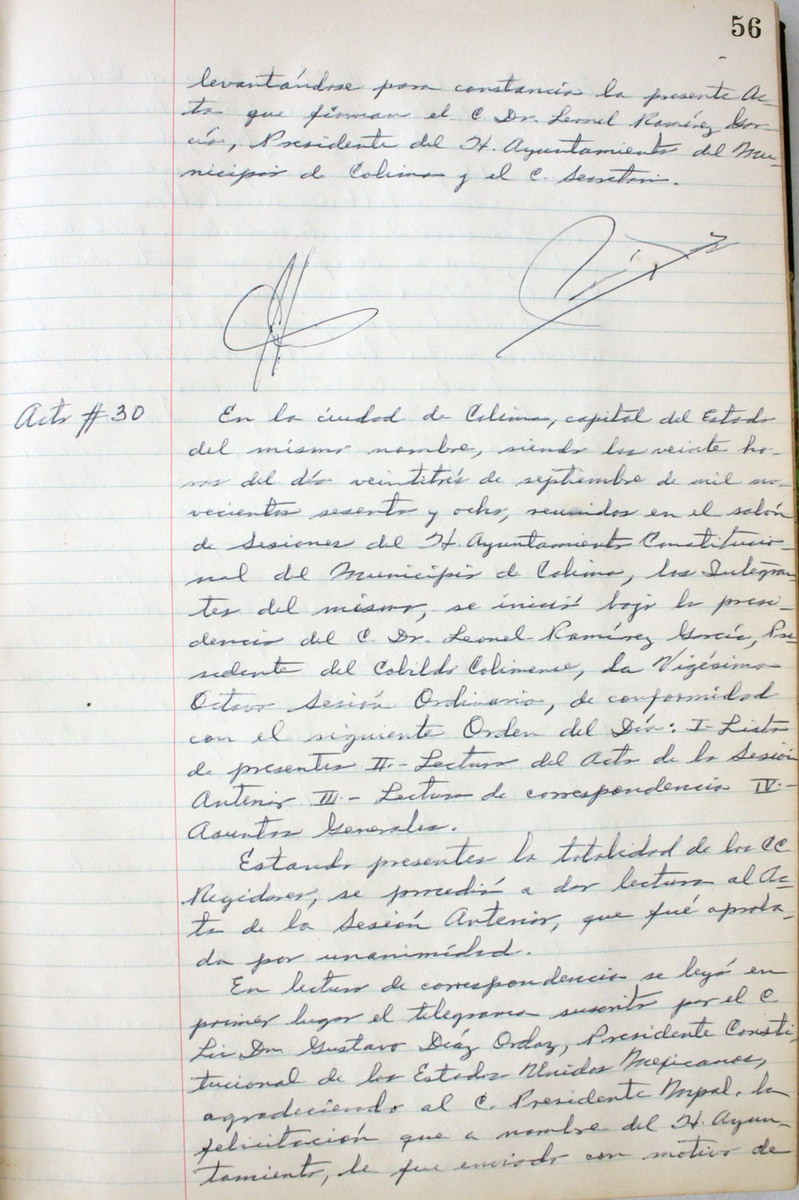 56
levantándose para constancia la presente Ac-
ta que firman el C. Dr. Leonel Ramírez Gar-
cía, Presidente del H. Ayuntamiento del Mu-
nicipio de Colima y el C. Secretario.
Acta # 30
En la ciudad de Colima, capital del Estado
del mismo nombre, siendo las veinte ho-
ras del día veintitrés de septiembre de mil no-
vecientos sesenta y ocho, reunidos en el salón
de Sesiones del H. Ayuntamiento Constitucio-
nal del Municipio de Colima, los Integran-
tes del mismo, se inició bajo la presi-
dencia del C. Dr. Leonel Ramírez García, Pre-
sidente del Cabildo Colimense, la Vigésima
Octava Sesión Ordinaria, de conformidad
con el siguiente Orden del Día: I- Lista
de presentes II.- Lectura del Acta de la Sesión
Anterior III.- Lectura de correspondencia IV.-
Asuntos Generales.
Estando presentes la totalidad de los CC
Regidores, se procedió a dar lectura al Ac-
ta de la Sesión Anterior, que fué aproba-
da por unanimidad.
En lectura de correspondencia se leyó en
primer lugar el telegrama suscrito por el C.
Lic Dn. Gustavo Díaz Ordaz, Presidente Consti-
tucional de los Estados Unidos Mexicanos,
agradeciendo al C. Presidente Mpal. la
felicitación que a nombre del H. Ayun-
tamiento, le fue enviada con motivo de